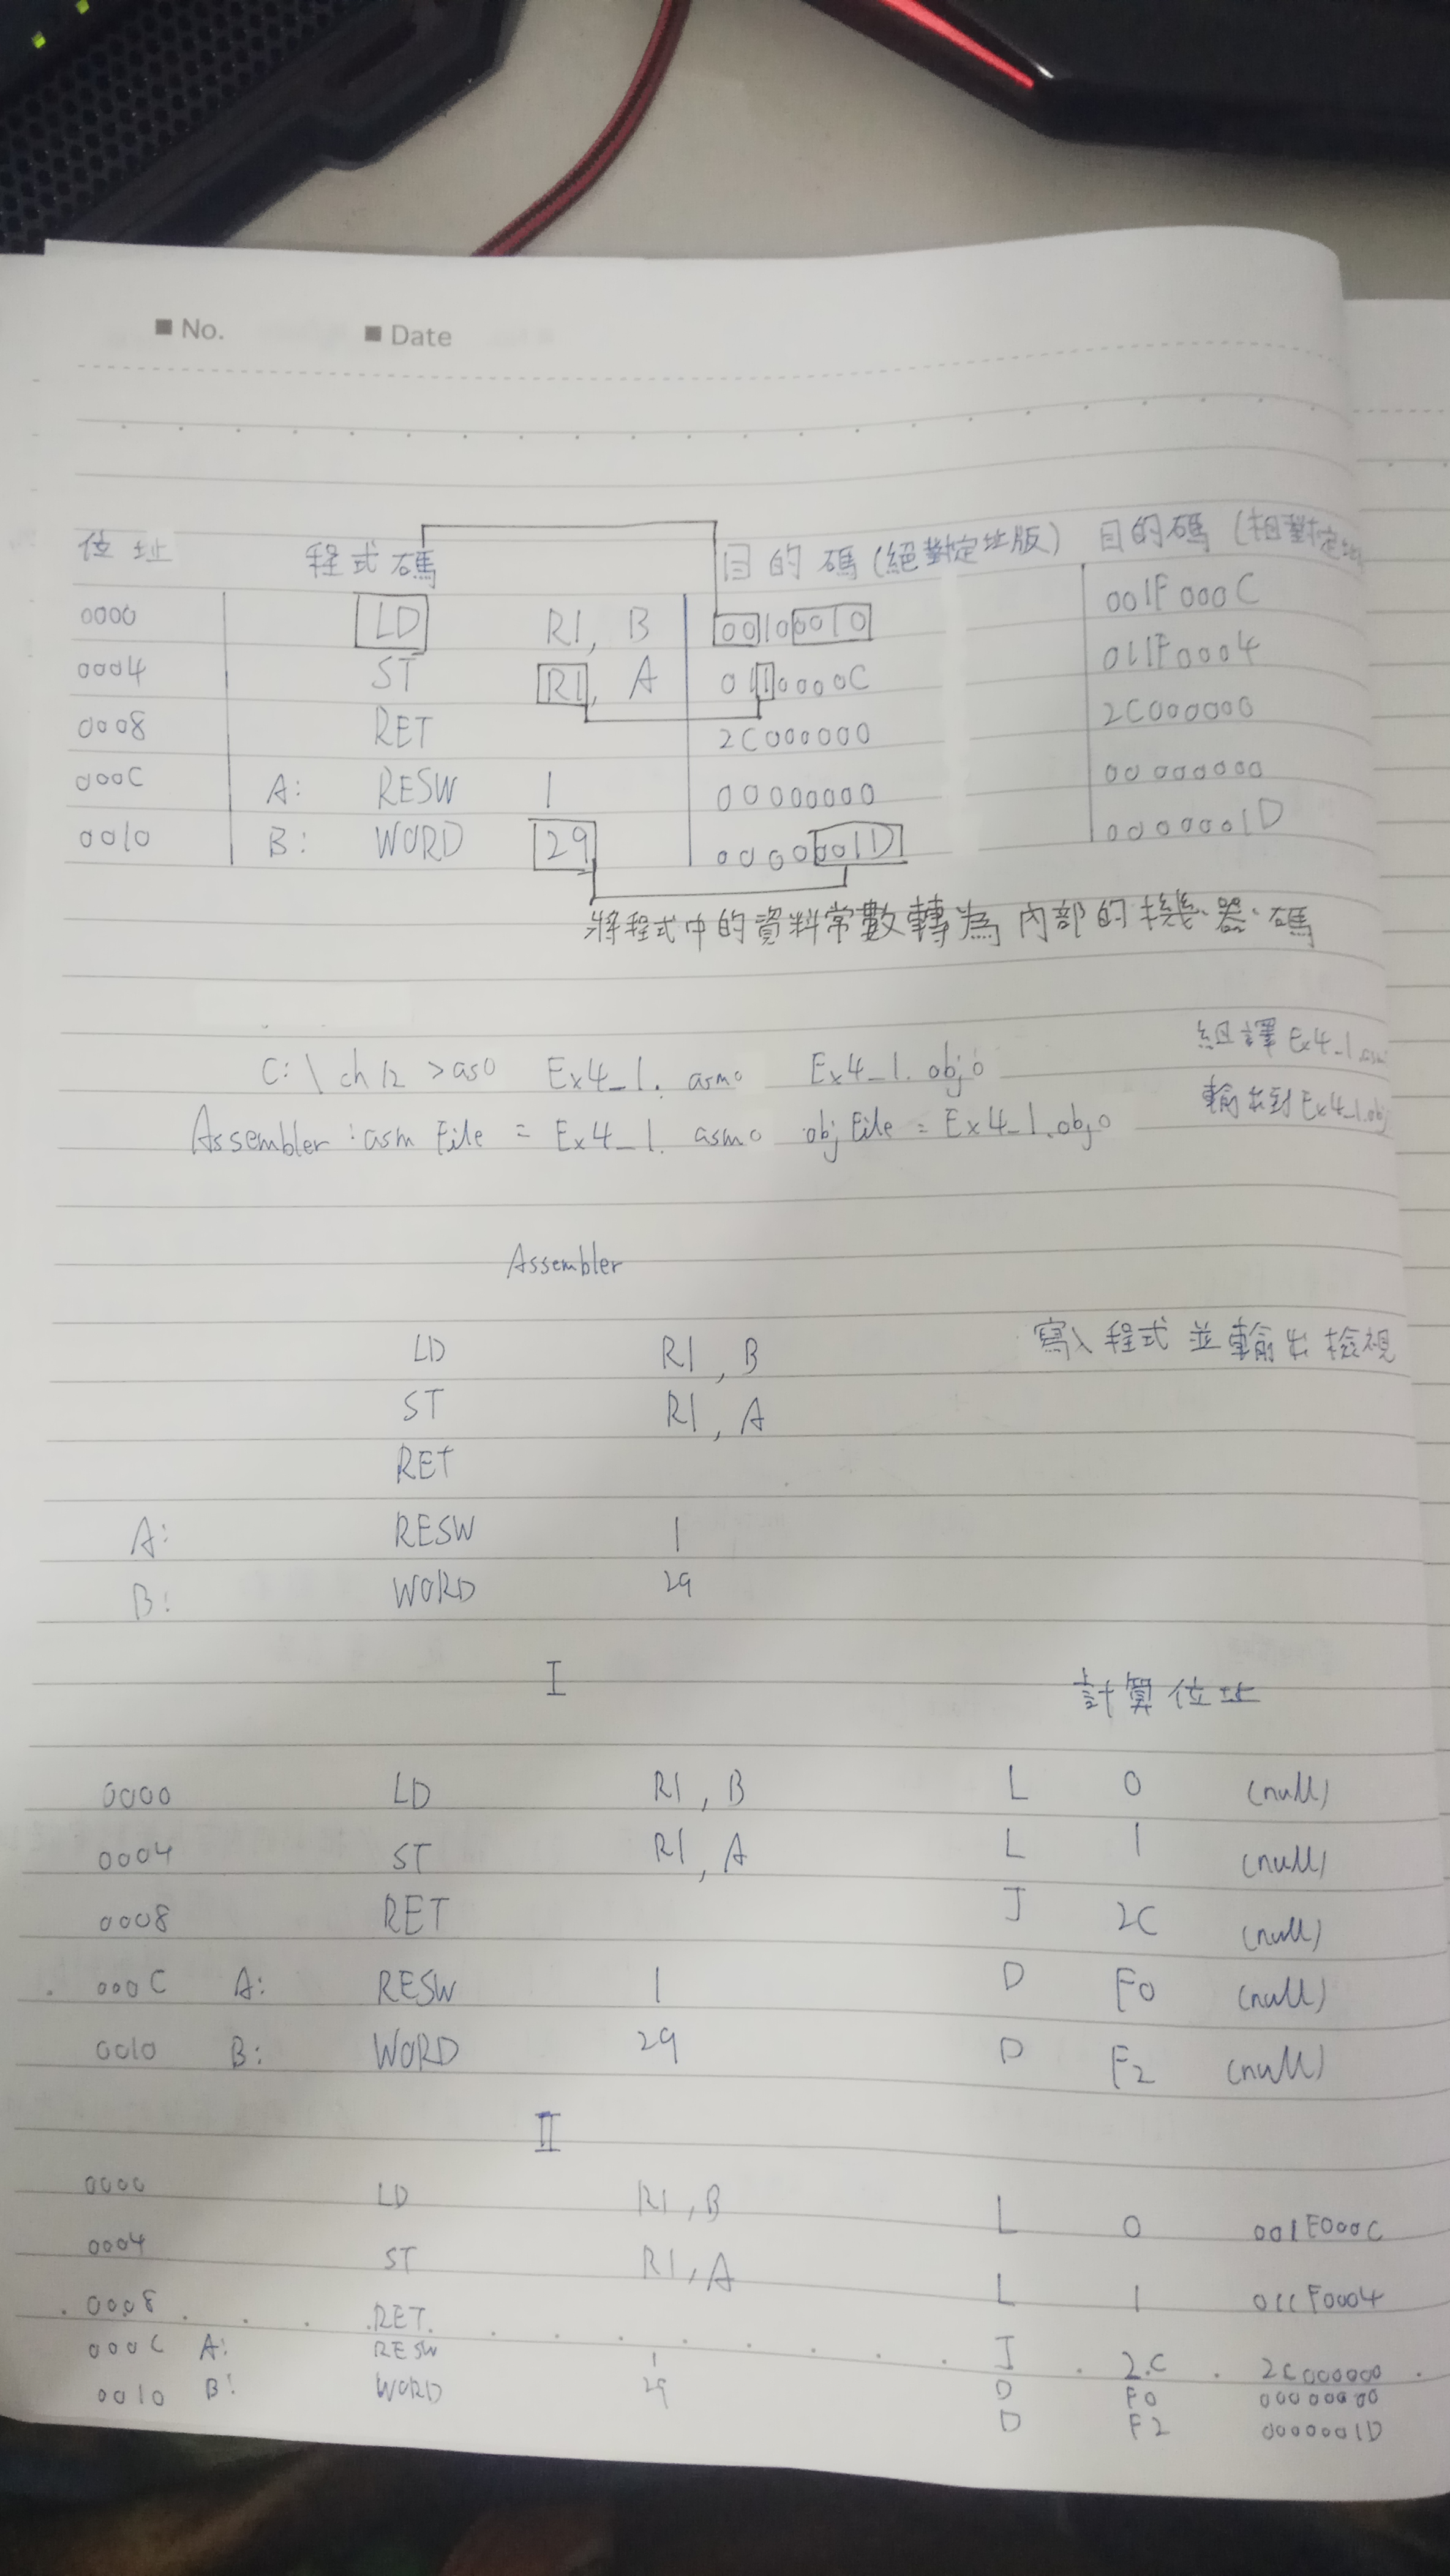 ■ No. ■ Date
位址 程式碼 目的碼(絕對定址版) 目的碼(相對定址
0000 LD R1, B 00100010 001F000C
0004 ST R1, A 0110000C 011F0004
0008 RET 2C000000 2C000000
000C A: RESW 1 00000000 00000000
0010 B: WORD 29 0000001D 0000001D
將程式中的資料常數轉為內部的機器碼
C:\ch12>as0 Ex4_1.asm0 Ex4_1.obj0 組譯Ex4_1.asm
Assembler:asmFile = Ex4_1.asm0 objFile = Ex4_1.obj0 輸出到Ex4_1.obj
Assembler
LD R1, B 寫入程式並輸出檢視
ST R1, A
RET
A: RESW 1
B: WORD 29
I 計算位址
0000 LD R1, B L 0 (null)
0004 ST R1, A L 1 (null)
0008 RET J 2C (null)
000C A: RESW 1 D F0 (null)
0010 B: WORD 29 D F2 (null)
II
0000 LD R1, B L 0 001F000C
0004 ST R1, A L 1 011F0004
0008 RET J 2C 2C000000
000C A: RESW 1 D F0 00000000
0010 B: WORD 29 D F2 0000001D